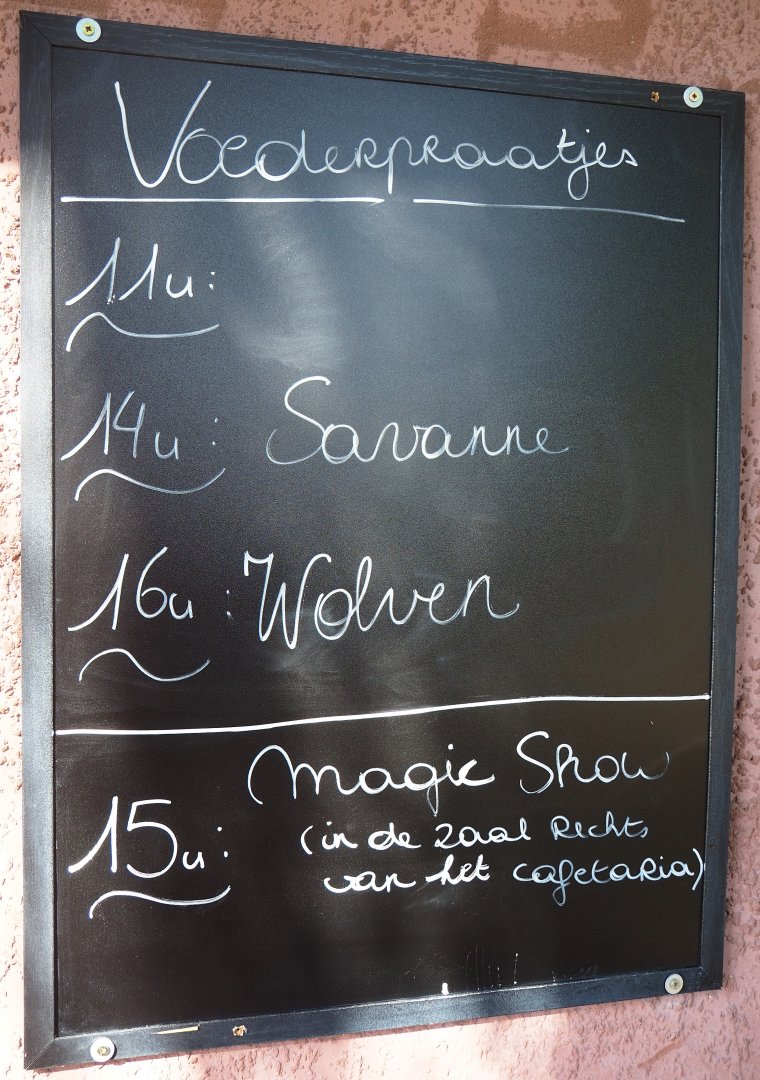 Voederpraatjes
11u:
14u: Savanne
16u: Wolven
Magic Show
15u: (in de zaal rechts
van het cafetaria)